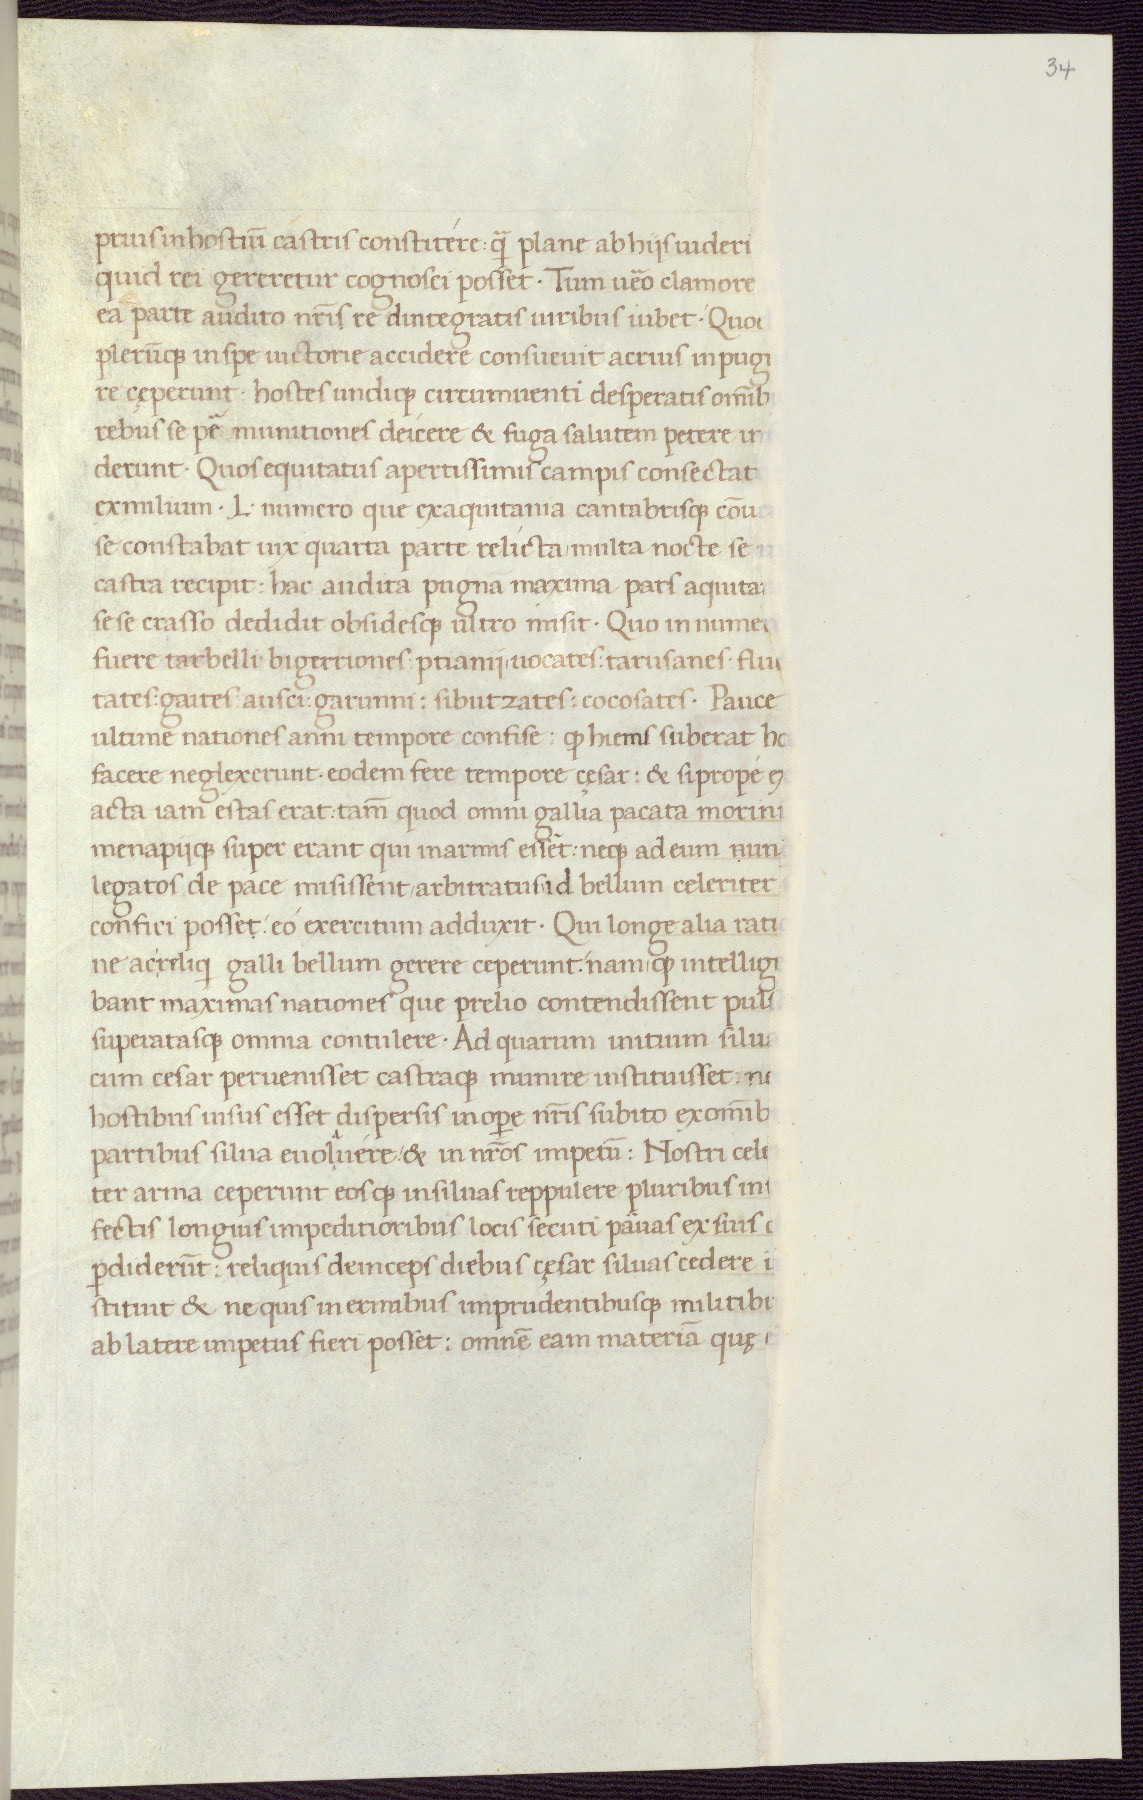 34
priusinhostiū castris constitére: q̄ plane abhijsuideri
quid rei gereretur cognosci posset· Tum ueȓo clamore
ea parte audito nr̄is re dintegratis uiribus iubet· Quo
plerūq; inspe uictorie accidere consueuit acrius inpug
re cęperunt· hostes undiq; circumuenti desperatis omīb
rebus se pē munitiones deicere & fuga salutem petere in
derunt· Quos equitatus apertissimis campis consectat
exmilium· L· numero que exaquitania cantabrisq; cōu
se constabat uix quarta parte relicta multa nocte se
castra recipit: hac audita pugna maxima pars aquita
sese crasso dedidit obsidesq; ultro misit· Quo in nume
fuere tarbelli bigerriones ptianij uocates: tarusanes flu
tates: gaites: ausci: garunni: sibutzates: cocosates· Pauce
ultime nationes anni tempore confise: q; hiems suberat ho
facere neglexerunt· eodem fere tempore cęsar: & sipropé ex
acta iam estas erat: tam̄ quod omni gallia pacata morini
menapijq; super erant qui inarmis essēt: neq; adeum nun
legatos de pace misissent arbitratus id bellum celeriter
confici posset: eó exercitum adduxit· Qui longe alia rati
ne ac reliqi galli bellum gerere ceperunt: namq; intellig
bant maximas nationes que prelio contendissent puls
superatasq; omnia contulere· Ad quarum initium silu
cum cesar peruenisset castraq; munire instituisset: ne
hostibus uisus esset dispersis inope nr̄is subito exomīb
partibus silua euolauére: & in nr̄os impetū: Nostri cele
ter arma ceperunt eosq; insiluas reppulere pluribus in
fectis longius impeditioribus locis secuti pauas ex suis
pdiderūt: reliquis deinceps diebus cęsar siluas cedere i
stituit & ne quis inermibus imprudentibusq; militib
ab latere impetus fieri posset: omnē eam materiā quę